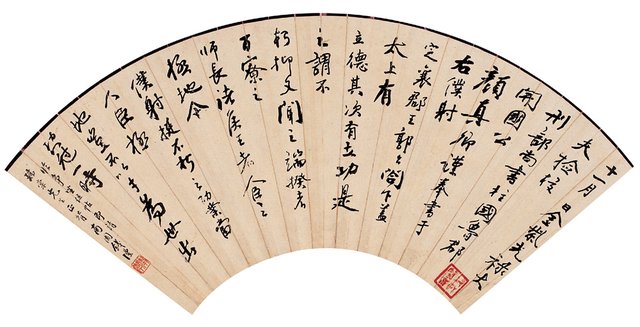 十一月日金紫光祿大
夫撿校
刑部尚書柱國魯郡
開國公
顏真卿謹奉書于
右僕射
定襄郡王郭公閤下蓋
太上有
立德其次有立功是
之謂不
朽抑又聞之端揆者
百寮之
師長諸侯王者人臣之
極地今
僕射挺不朽之功業當
人臣極
地豈不以才為世出
功冠一時